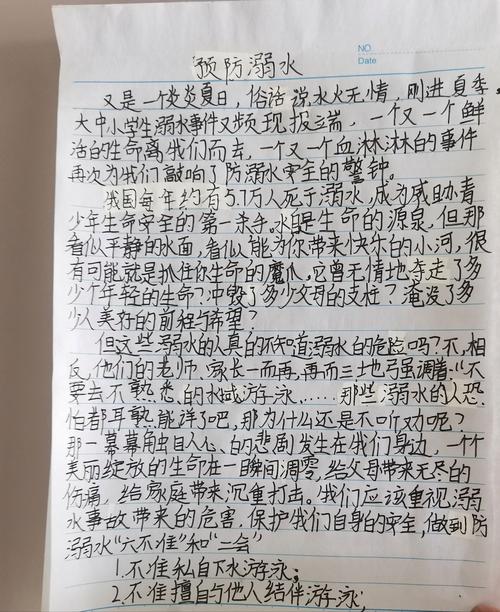 NO.
Date
预防溺水
又是一个炎炎夏日，俗话说水火无情，刚进夏季，
大中小学生溺水事件又频现报端，一个又一个鲜
活的生命离我们而去，一个又一个血淋淋的事件
再次为我们敲响了防溺水安全的警钟。
我国每年约有5.7万人死于溺水，成为威胁青
少年生命安全的第一杀手。水是生命的源泉，但那
看似平静的水面，看似能为你带来快乐的小河，很
有可能就是抓住你生命的魔爪，它曾无情地夺走了多
少个年轻的生命？冲毁了多少父母的支柱？淹没了多
少人美好的前程与希望？
但这些溺水的人真的不知道溺水的危险吗？不，相
反，他们的老师、家长一而再，再而三地强调着：“不
要去不熟悉的水域游泳……那些溺水的人恐
怕都耳熟能详了吧，那为什么还是不听劝呢？
那一幕幕触目人心的悲剧发生在我们身边，一个个
美丽绽放的生命在一瞬间凋零，给父母带来无尽的
伤痛，给家庭带来沉重打击。我们应该重视溺
水事故带来的危害，保护我们自身的安全，做到防
溺水“六不准”和“二会”
1.不准私自下水游泳；
2.不准擅自与他人结伴游泳；